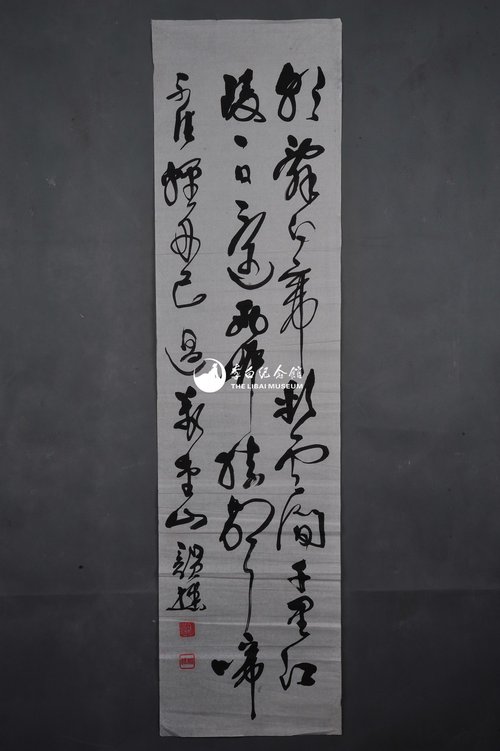 朝辭白帝彩雲間千里江
陵一日還兩岸猿聲啼
不住輕舟已過萬重山
李白纪念馆
THE LIBAI MUSEUM